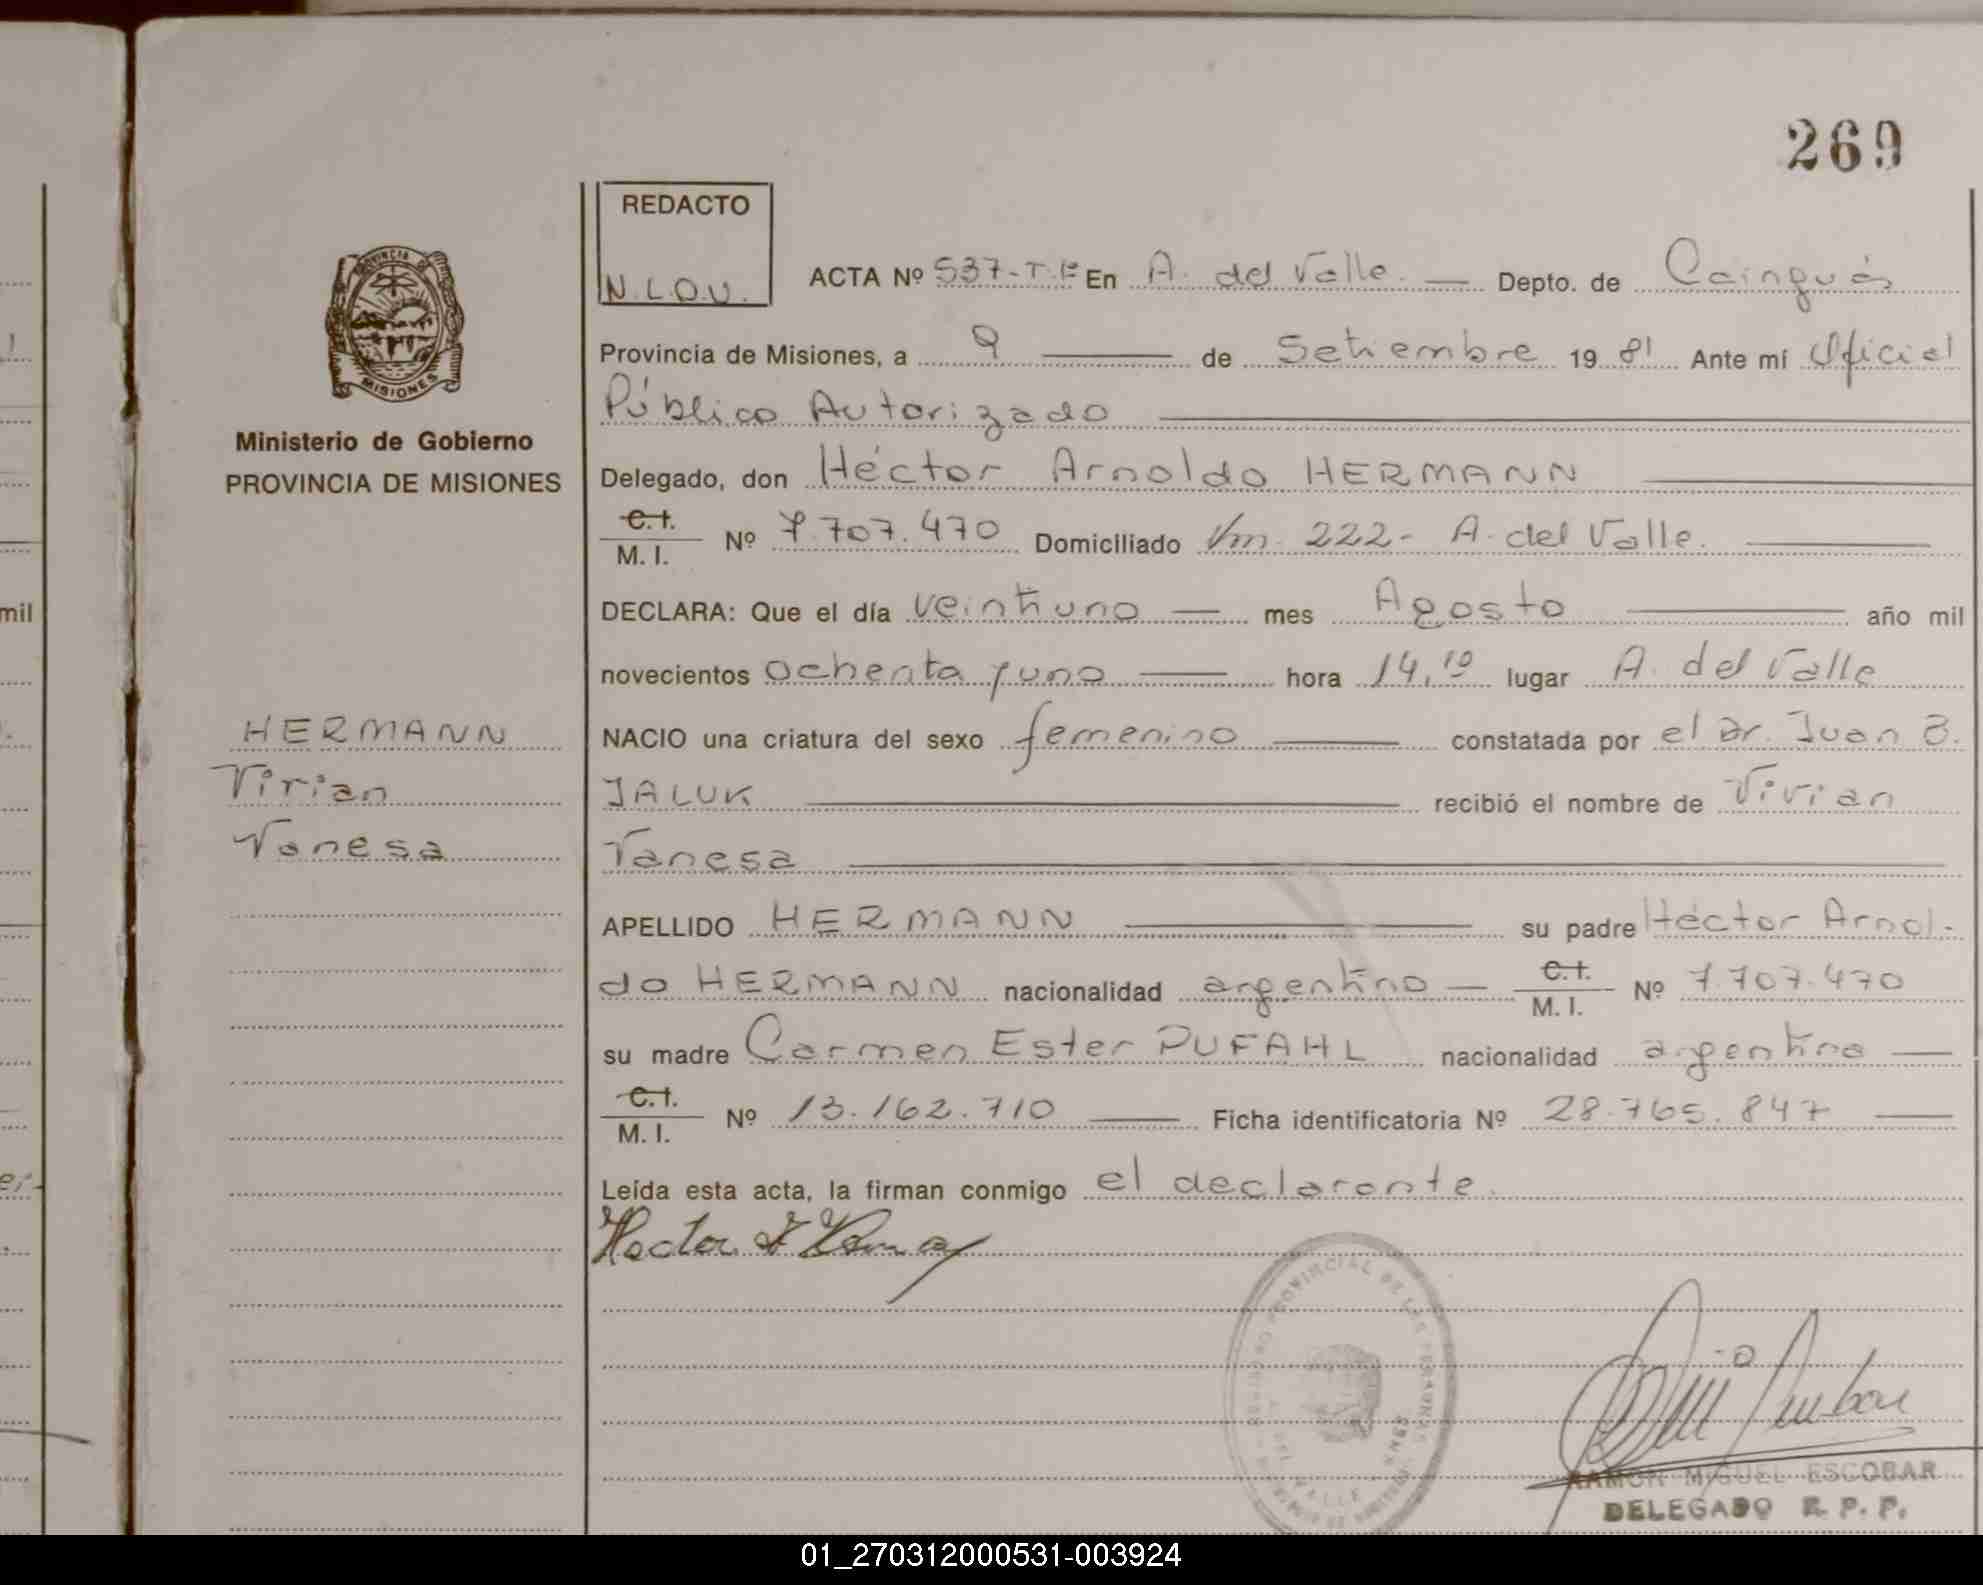 269
REDACTO
N.L.O.V.
ACTA Nº 537-T.Iº En A. del Valle. — Depto. de Cainguás
PROVINCIA DE
MISIONES
Provincia de Misiones, a 9 — de Setiembre 1981 Ante mí Oficial
Público Autorizado
Ministerio de Gobierno
PROVINCIA DE MISIONES
Delegado, don Héctor Arnoldo HERMANN
C.I.
M.I. Nº 7.707.470 Domiciliado Km. 222- A. del Valle.
DECLARA: Que el día veintiuno — mes Agosto — año mil
mil
novecientos ochenta y uno — hora 14,10 lugar A. del Valle
HERMANN
Virian
Vanesa
NACIO una criatura del sexo femenino — constatada por el Dr. Juan B.
JALUK — recibió el nombre de Vivian
Vanesa
APELLIDO HERMANN — su padre Héctor Arnol-
do HERMANN nacionalidad argentino — C.I. M.I. Nº 7.707.470
su madre Carmen Ester PUFAHL nacionalidad argentina —
C.I.
M.I. Nº 13.162.710 — Ficha identificatoria Nº 28.765.847 —
Leída esta acta, la firman conmigo el declarante.
Hector A
PROVINCIAL DE LAS PERSONAS
DEL VALLE
RAMON MIGUEL ESCOBAR
DELEGADO R. P. P.
01_270312000531-003924